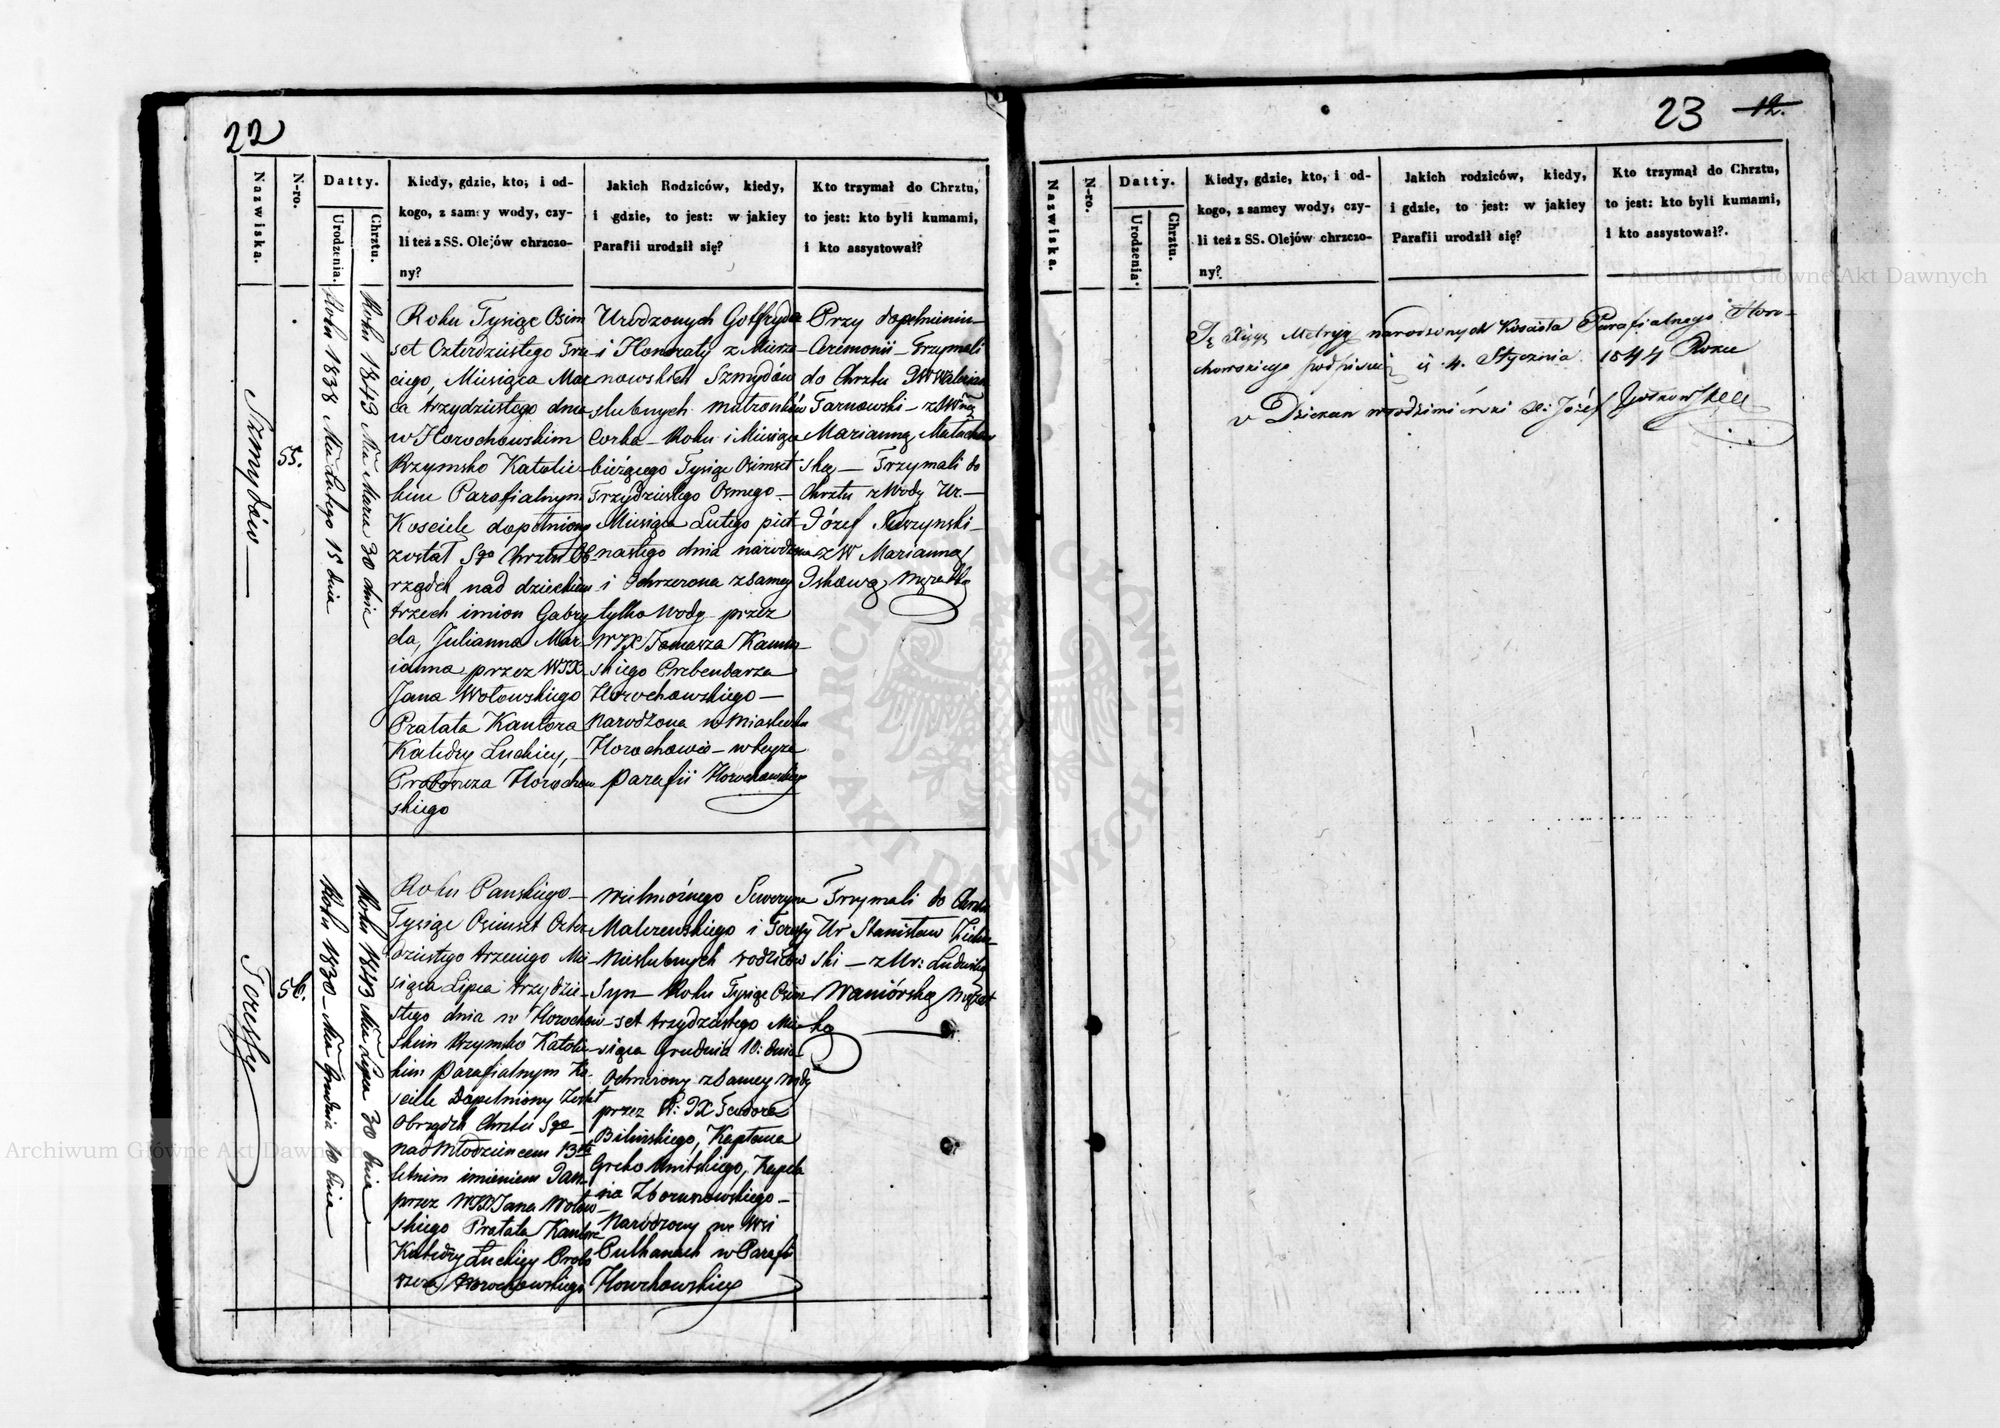 22
Nazwiska.
N-ro.
Datty.
Urodzenia.
Chrztu.
Kiedy, gdzie, kto, i od-
kogo, z samey wody, czy-
li też z SS. Olejów chrzczo-
ny?
Jakich Rodziców, kiedy,
i gdzie, to jest: w jakiey
Parafii urodził się?
Kto trzymał do Chrztu,
to jest: kto byli kumami,
i kto assystował?
Szmydów
55.
Roku 1838 Lutego 15 dnia
Roku 1843 Marca 30 dnia
Roku Tysiąc Osim
set Czterdziestego Trze
ciego, Miesiąca Mar
ca trzydziestego dnia
w Horochowskim
Rzymsko Katolic-
kim Parafialnym
Kosciele dopełniony
został Sgo Chrztu Ob-
rządek nad dzieckiem
trzech imion Gabry
ela, Julianna Mar-
ianna przez WJX
Jana Wołowskiego
Prałata Kantora
Katedry Luckiey,
Proboszcza Horochow
skiego
Urodzonych Gotfryda
i Honoraty z Mierze-
nowskich Szmydów
slubnych małzonków
Corka Roku i Miesiąca
bieżącego Tysiąc Osimset
Trzydziestego Osmego
Miesiąca Lutego piet
nastego dnia narodzona
i Ochrzczona z samey
tylko wody przez
WJX Tomasza
skiego Prebendarza
Horochowskiego
Narodzona w Miasteczku
Horochowie w teyze
Parafii Horochowskiey
Przy dopełnieniu
Ceremonii Trzymali
do Chrztu JW Waleryan
Tarnowski z JW
Marianną Małachow
ską Trzymali do
Chrztu z Wody Ur.
Józef
z W Marianną
56.
Roku 1830 Grudnia 10 dnia
Roku 1843 Lipca 30 dnia
Roku Panskiego
Tysiąc Osimset Czter
dziestego trzeciego Mie
siąca Lipca trzydzie
stego dnia w Horochow
skim Rzymsko Katolic
kim Parafialnym Ko
sciele Dopełniony Został
Obrządek Chrztu Sgo
nad Młodziencem 13to
letnim imieniem Jan
przez WJX Jana Wołow
skiego Prałata Kantora
Katedry Luckiey Probo
szcza Horochowskiego
Wielmożnego Seweryna
Malczewskiego i Teressy
Nieslubnych rodziców
Syn Roku Tysiąc Osim
set trzydziestego Mie
siąca Grudnia 10: dnia
Ochrzczony z samey wody
przez W: JX Teodora
Bilińskiego, Kapłana
Greko Unitskiego, Kapela
na
Narodzony we Wsi
Pułhanach w Parafii
Horochowskiey
Trzymali do Chrztu
Ur Stanisław
ski z Ur: Ludwiką
23
12.
Nazwiska.
N-ro.
Datty.
Urodzenia.
Chrztu.
Kiedy, gdzie, kto, i od-
kogo, z samey wody, czy-
li też z SS. Olejów chrzczo-
ny?
Jakich rodziców, kiedy,
i gdzie, to jest: w jakiey
Parafii urodził się?
Kto trzymał do Chrztu,
to jest: kto byli kumami,
i kto assystował?.
Tę Xięgę Metryk narodzonych Koscioła Parafialnego Horo-
chowskiego 4. Stycznia 1844 Roku
Dziekan Włodzimirski Józef
Archiwum Główne Akt Dawnych
Archiwum Główne Akt Dawnych
ARCHIWUM GŁÓWNE
AKT DAWNYCH